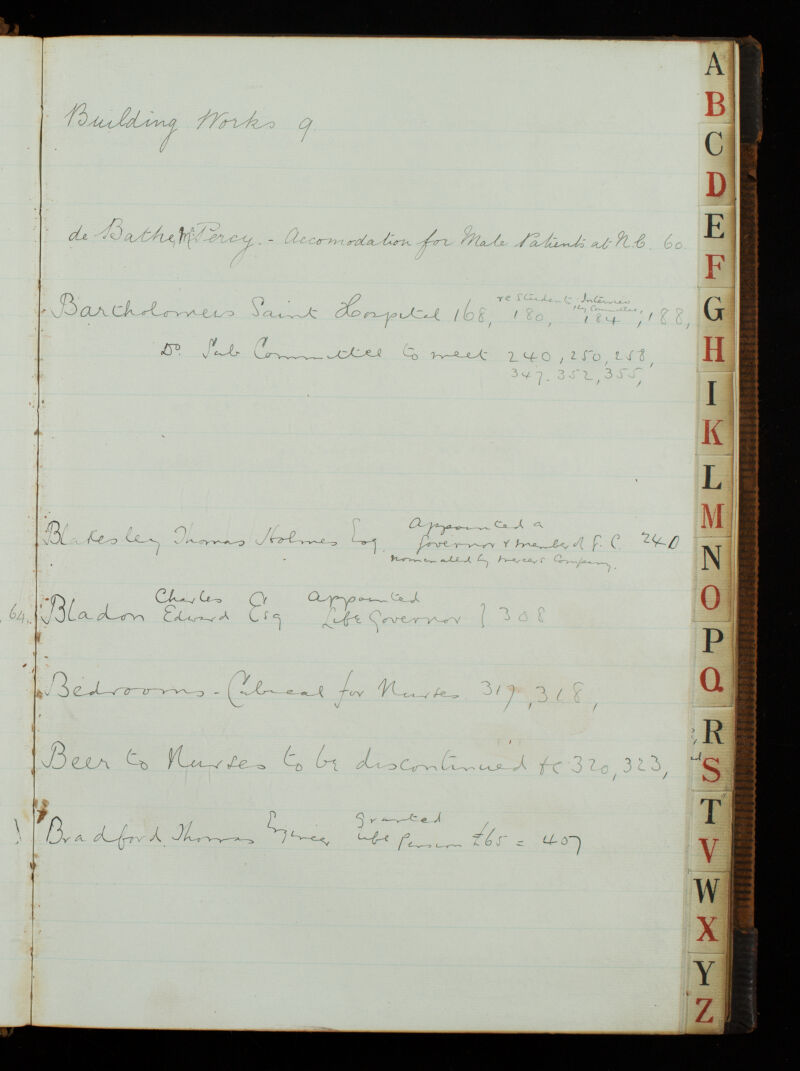 Building Works 9
de Bathe, Mr Percy. - Accomodation for Male Patients at N.C. 60
re Students Internes
by Committee,
Bartholomews Saint Hospital 168, 180, 184, 188,
Do. Sub Committee to meet 240, 250, 258,
347. 352, 355,
Appointed a
Blakesley Thomas Holmes Esq. Governor & member of G. C. 240
nominated by Mercers Company.
Charles Appointed
64. Bladon Edward Esq Life Governor } 308
Bedrooms - Cubical for Nurses 317, 318,
Beer to Nurses to be discontinued &c 320, 323,
granted
Bradford Thomas Engineer Life Pension £65 = 407
A
B
C
D
E
F
G
H
I
K
L
M
N
O
P
Q
R
S
T
V
W
X
Y
Z